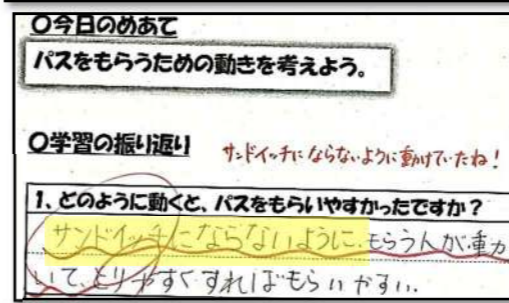 〇今日のめあて
パスをもらうための動きを考えよう。
〇学習の振り返り
サンドイッチにならないように動けていたね!
1、どのように動くと、パスをもらいやすかったですか?
サンドイッチにならないように、もらう人が重力
いて、とりやすくすればもらいやすい。